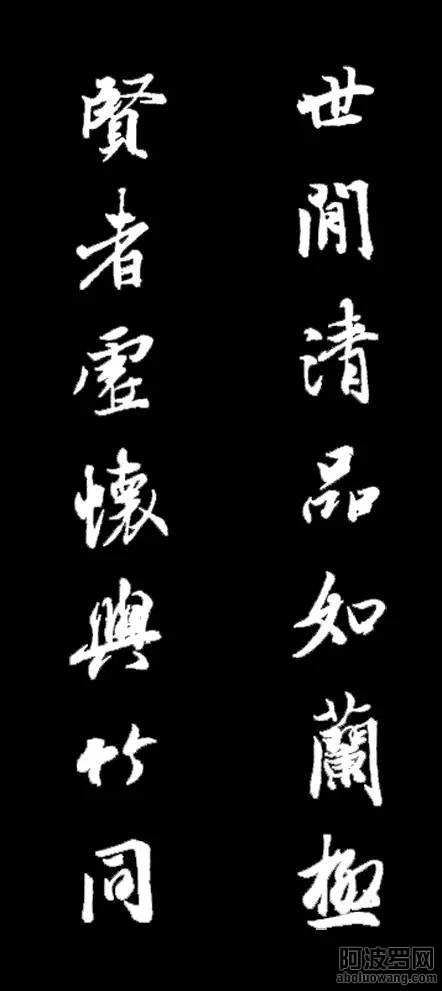 世閒清品如蘭極
賢者虛懷與竹同
阿波罗网
aboluowang.com